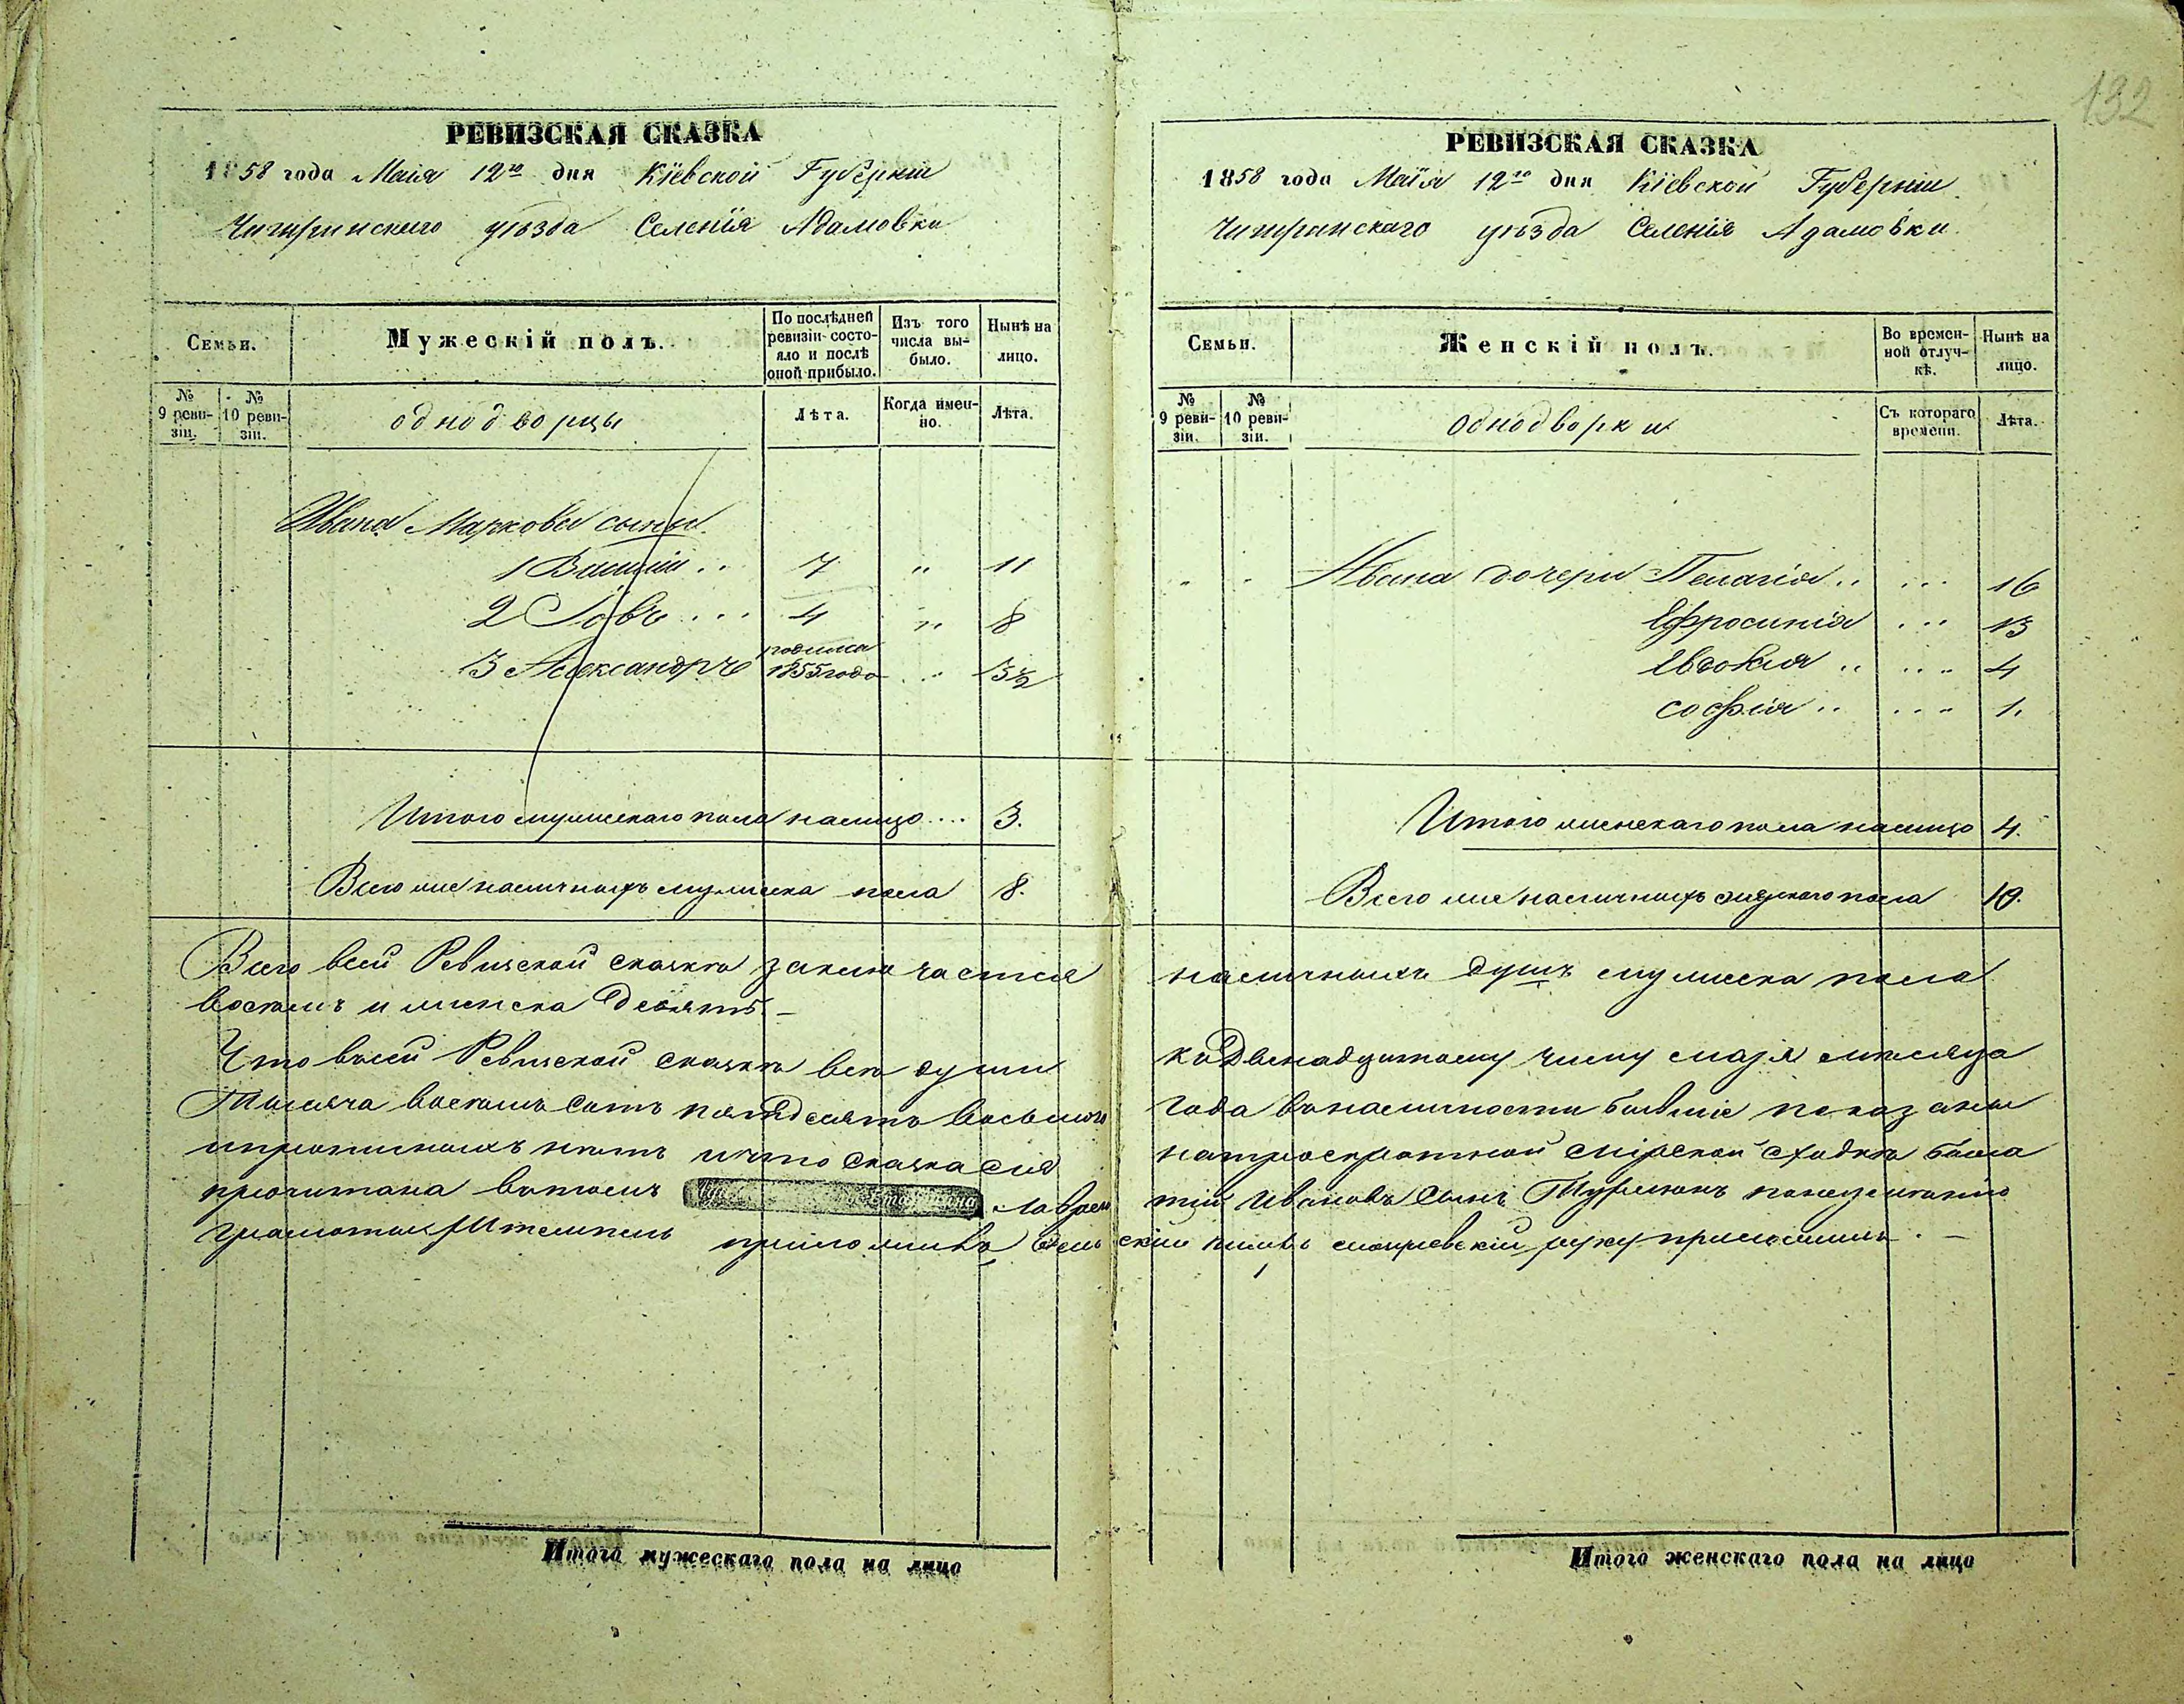 132
РЕВИЗСКАЯ СКАЗКА
1858 года Маія 12го дня Кіевской Губерніи
Чигиринскаго уѣзда Селенія Адамовки
Семьи.
Мужескій полъ.
По послѣдней ревизіи состояло и послѣ оной прибыло.
Изъ того числа выбыло.
Нынѣ на лицо.
№ 9 ревизіи.
№ 10 ревизіи.
однодворцы
Лѣта.
Когда именно.
Лѣта.
Ивана Маркова сыны
1 Василій .. 7 " 11
2 Іовъ ... 4 " 8
3 Александръ родился 1855 года .. 3½
Итого мужескаго пола налицо .... 3.
Всего же наличныхъ мужеска пола 8.
РЕВИЗСКАЯ СКАЗКА
1858 года Маія 12го дня Кіевской Губерніи
Чигринскаго уѣзда Селенія Адамовки.
Семьи.
Женскій полъ.
Во временной отлучкѣ.
Нынѣ на лицо.
№ 9 ревизіи.
№ 10 ревизіи.
Однодворки
Съ котораго времени.
Лѣта.
Ивана дочери Пелагія .. ... 16
Ефросинія ... 13
Евдокія .. ... 4
софія .. ... 1.
Итого женскаго пола налицо 4.
Всего же наличныхъ пола 10.
Всего всей Ревизской сказкѣ заключается наличныхъ душъ мужеска пола
восемь и женска Девять. —
Что всей Ревизской сказкѣ всѣ души къ Двенадцатому числу маія месяца
Тысяча восемь сотъ пятдесятъ восьмого года въ наличности бывшіе показаны
и прописныхъ нѣтъ и что сказка сія на троекратной мірской сходкѣ была
прочитана въ томъ Лаврентій Ивановъ Сынъ
Штемпель приложивъ руку приложилъ. —
Итого мужескаго пола на лицо
Итого женскаго пола на лицо